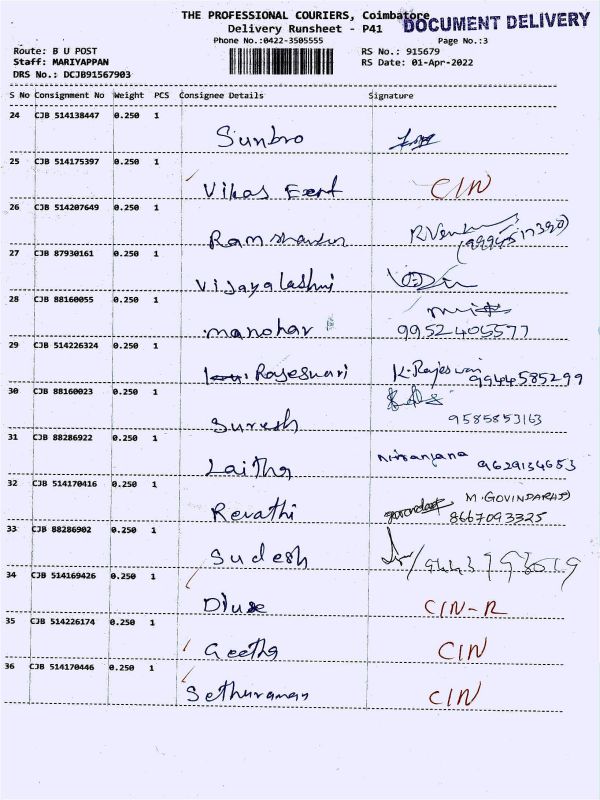 THE PROFESSIONAL COURIERS, Coimbatore
DOCUMENT DELIVERY
Delivery Runsheet - P41
Phone No.:0422-3505555
Page No.:3
Route: B U POST
RS No.: 915679
Staff: MARIYAPPAN
RS Date: 01-Apr-2022
DRS No.: DCJB91567903
S No Consignment No Weight PCS Consignee Details Signature
24 CJB 514138447 0.250 1
Sunbro
25 CJB 514175397 0.250 1
Vikas CIN
26 CJB 514207649 0.250 1
27 CJB 87930161 0.250 1
Vijayalashmi
28 CJB 88160055 0.250 1
manohar 9952405577
29 CJB 514226324 0.250 1
Rajeswari K. Rajeswari 9944585299
30 CJB 88160023 0.250 1
Suresh 9585853163
31 CJB 88286922 0.250 1
Laitha Niranjana 9629134653
32 CJB 514170416 0.250 1
M. GOVINDARAJ
Revathi 8667093325
33 CJB 88286902 0.250 1
Sudesh
34 CJB 514169426 0.250 1
CIN-R
35 CJB 514226174 0.250 1
Geetha CIN
36 CJB 514170446 0.250 1
Sethuraman CIN